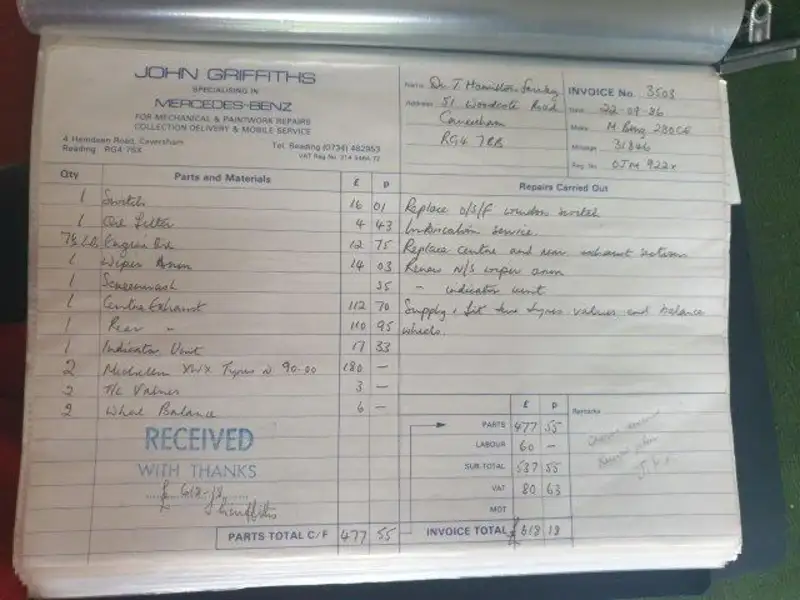 JOHN GRIFFITHS
SPECIALISING IN
MERCEDES-BENZ
FOR MECHANICAL & PAINTWORK REPAIRS
COLLECTION DELIVERY & MOBILE SERVICE
4 Hemdean Road, Caversham
Reading RG4 7SX
Tel. Reading (0734) 482953
VAT Reg No
Name Dr T. Hamilton
Address 51 Woodcote Road
Caversham
RG4 7BB
INVOICE No. 3503
Date 22-09-86
Make M. Benz 280CE
Mileage 31846
Reg. No. OJM 922X
Qty Parts and Materials £ p Repairs Carried Out
1 Switch 16 01 Replace o/s/f window switch
1 Oil Filter 4 43 Lubrication service.
7½ Lts Engine Oil 12 75 Replace centre and rear exhaust sections
1 Wiper Arm 14 03 Renew N/S wiper arm
1 Screenwash 35 - indicator unit
1 Centre Exhaust 112 70 Supply, fit two tyres valves and balance
1 Rear " 110 95 wheels.
1 Indicator Unit 17 33
2 Michelin XWX Tyres @ 90-00 180 -
2 T/L Valves 3 -
2 Wheel Balance 6 -
£ p Remarks
PARTS 477 55
LABOUR 60 -
SUB-TOTAL 537 55
VAT 80 63
MOT
INVOICE TOTAL £ 618 18
RECEIVED
WITH THANKS
£ 618-18
J Griffiths
PARTS TOTAL C/F 477 55